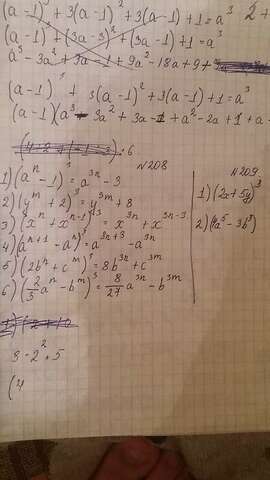 (a-1)³+3(a-1)²+3(a-1)+1=a³
(a-1)³+(3a-3)²+(3a-1)+1=a³
a³-3a²+3a-1+9a²-18a+9+
(a-1)³+3(a-1)²+3(a-1)+1=a³
(a-1)(a³-3a²+3a-1+a²-2a+1+a-
№208
1)(aⁿ-1)³=a³ⁿ-3
2)(yᵐ+2)³=y³ᵐ+8
3)(xⁿ+xⁿ⁻¹)³=x³ⁿ+x³ⁿ⁻³
4)(aⁿ⁺¹-aⁿ)³=a³ⁿ⁺³-a³ⁿ
5)(2bⁿ+cᵐ)³=8b³ⁿ+c³ᵐ
6)(2/3aⁿ-bᵐ)³=8/27a³ⁿ-b³ᵐ
№209
1)(2x+5y)³
2)(4a⁵-3b³)
3-2²+5
(4